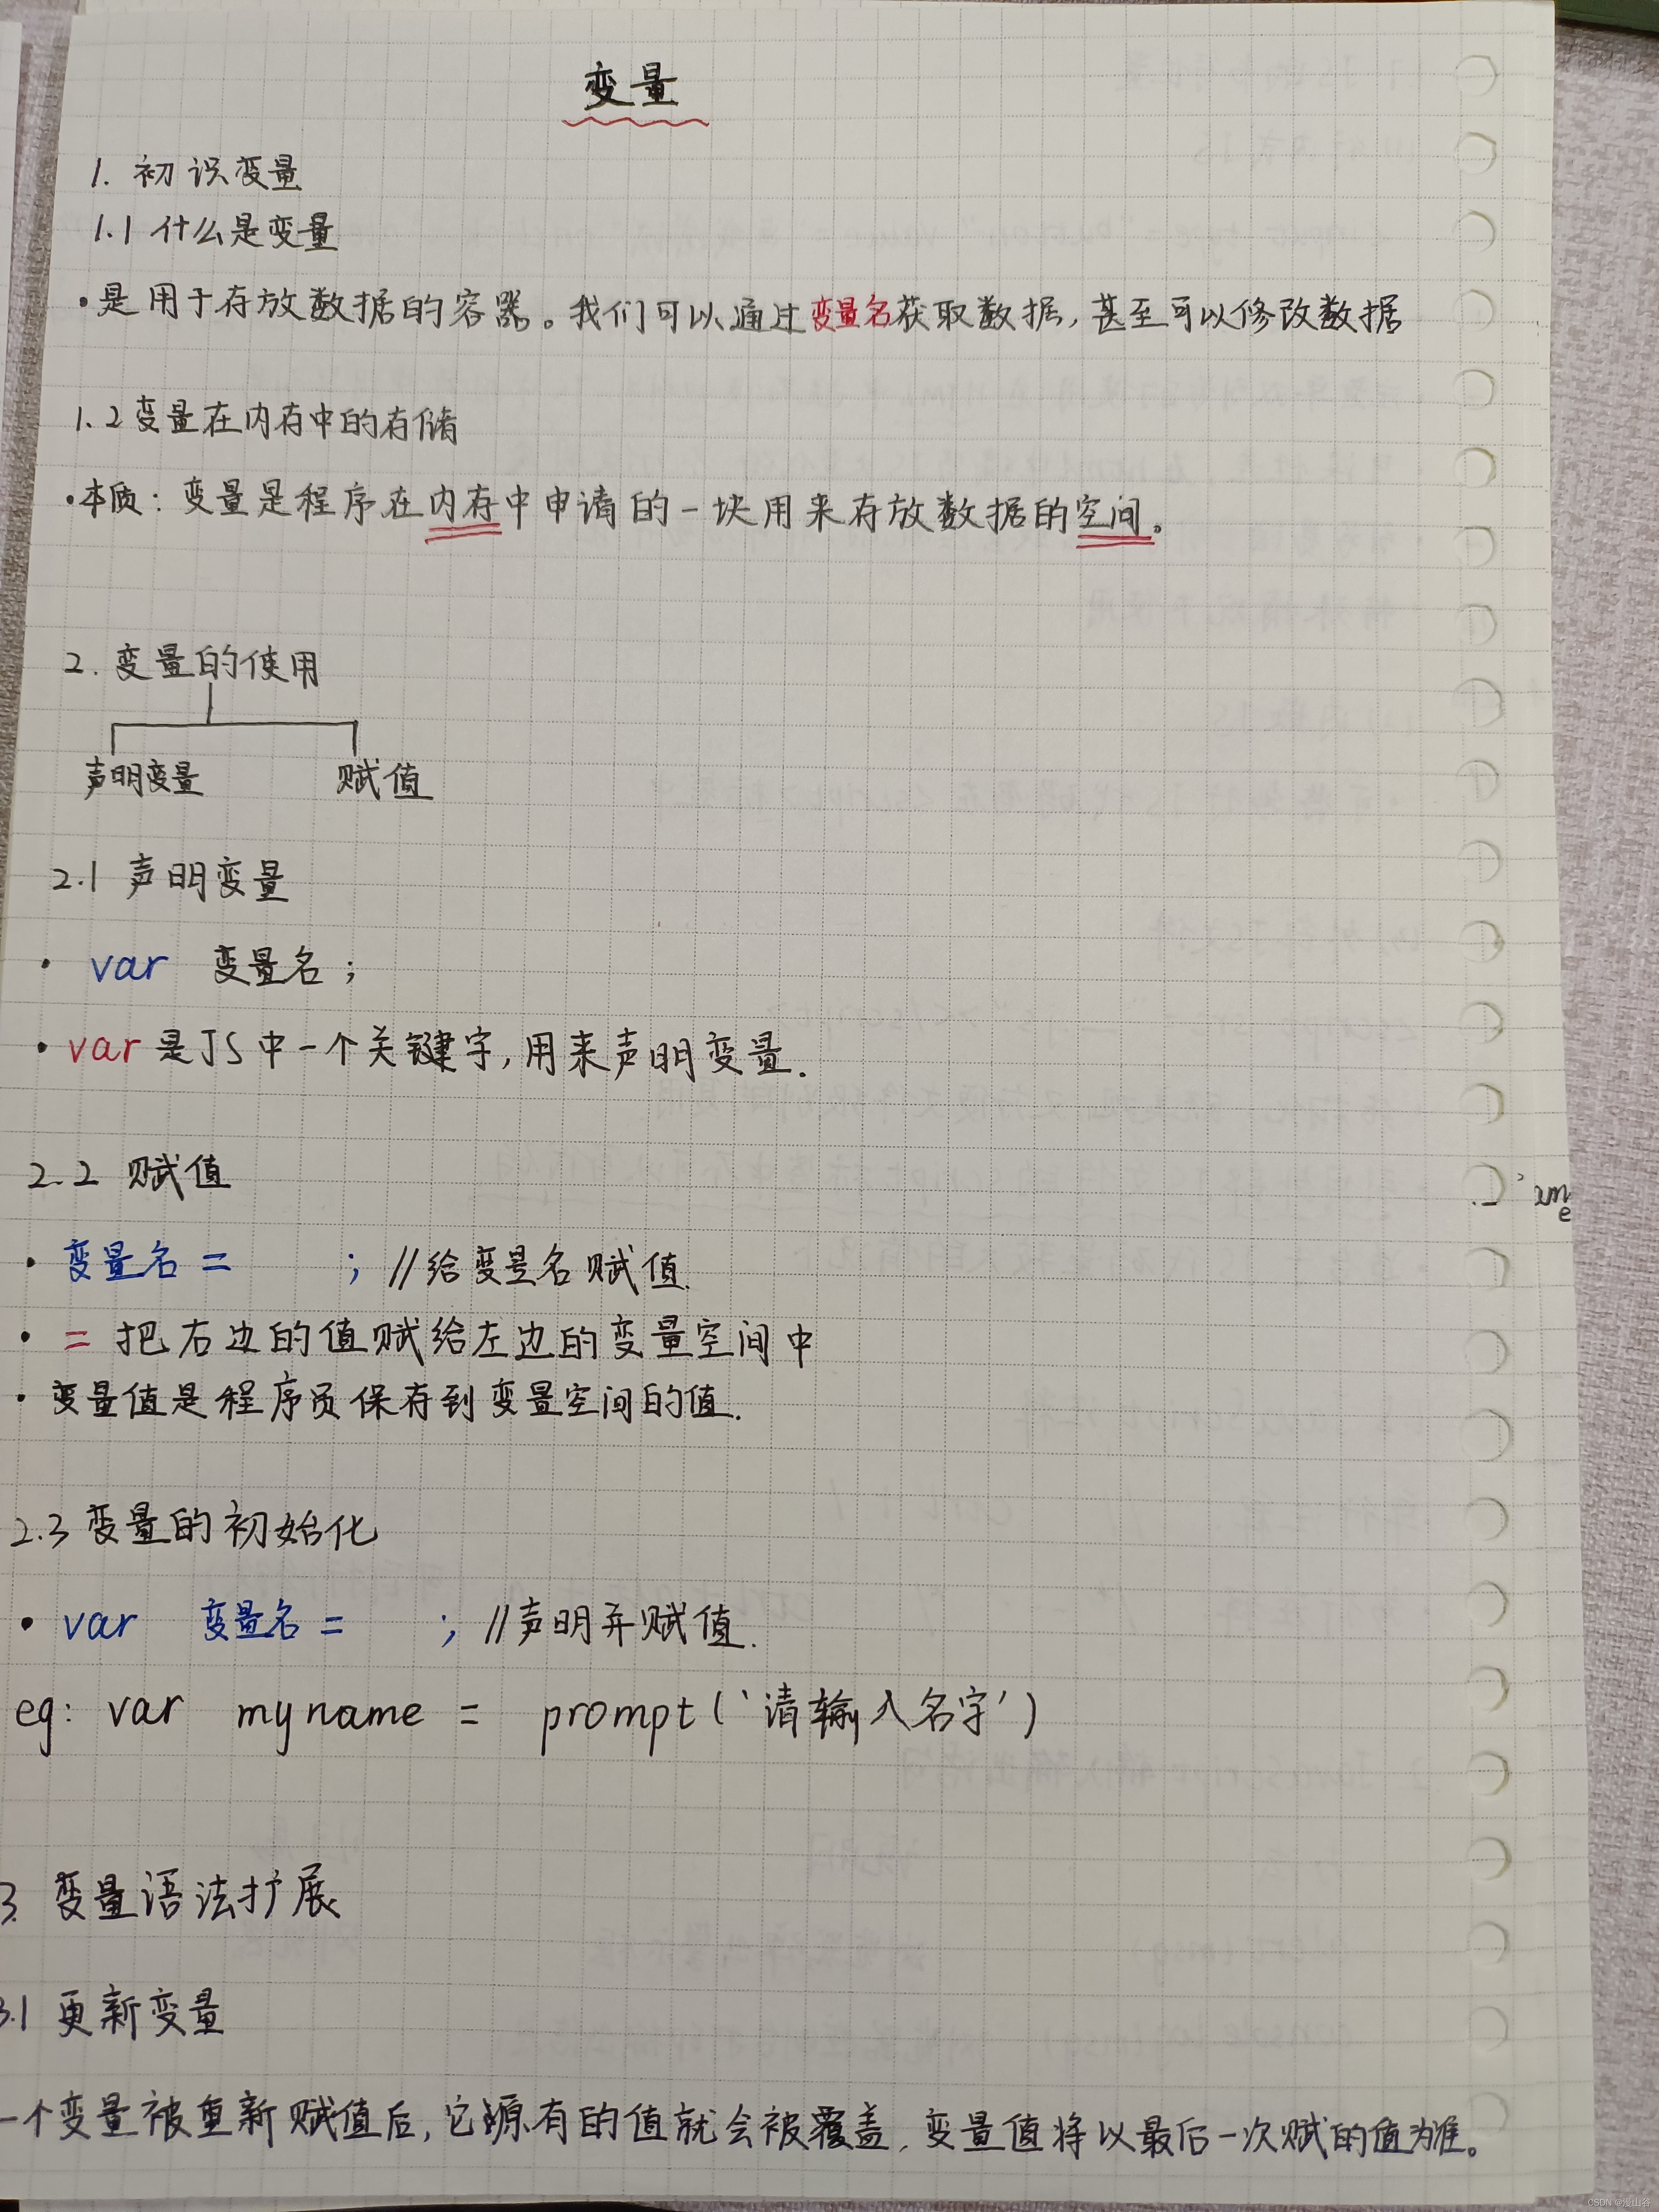 变量
1. 初识变量
1.1 什么是变量
·是用于存放数据的容器。我们可以通过变量名获取数据,甚至可以修改数据
1.2 变量在内存中的存储
·本质：变量是程序在内存中申请的一块用来存放数据的空间。
2. 变量的使用
声明变量 赋值
2.1 声明变量
· var 变量名；
· var是JS中一个关键字,用来声明变量.
2.2 赋值
· 变量名 = ； //给变量名赋值.
· = 把右边的值赋给左边的变量空间中
· 变量值是程序员保存到变量空间的值.
2.3 变量的初始化
· var 变量名 = ； //声明并赋值.
eg: var myname = prompt('请输入名字')
3. 变量语法扩展
3.1 更新变量
一个变量被重新赋值后,它原有的值就会被覆盖,变量值将以最后一次赋的值为准。
CSDN @漫山谷